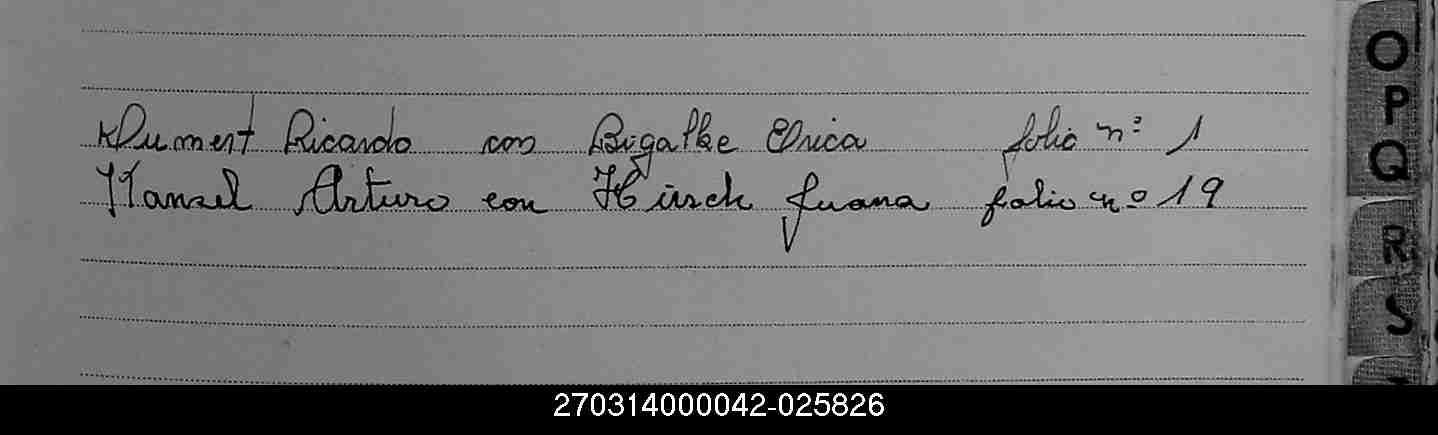 Klument Ricardo con Bigalke Erica folio n° 1
Hansel Arturo con Hirsch Juana folio n° 19
O
P
Q
R
S
270314000042-025826